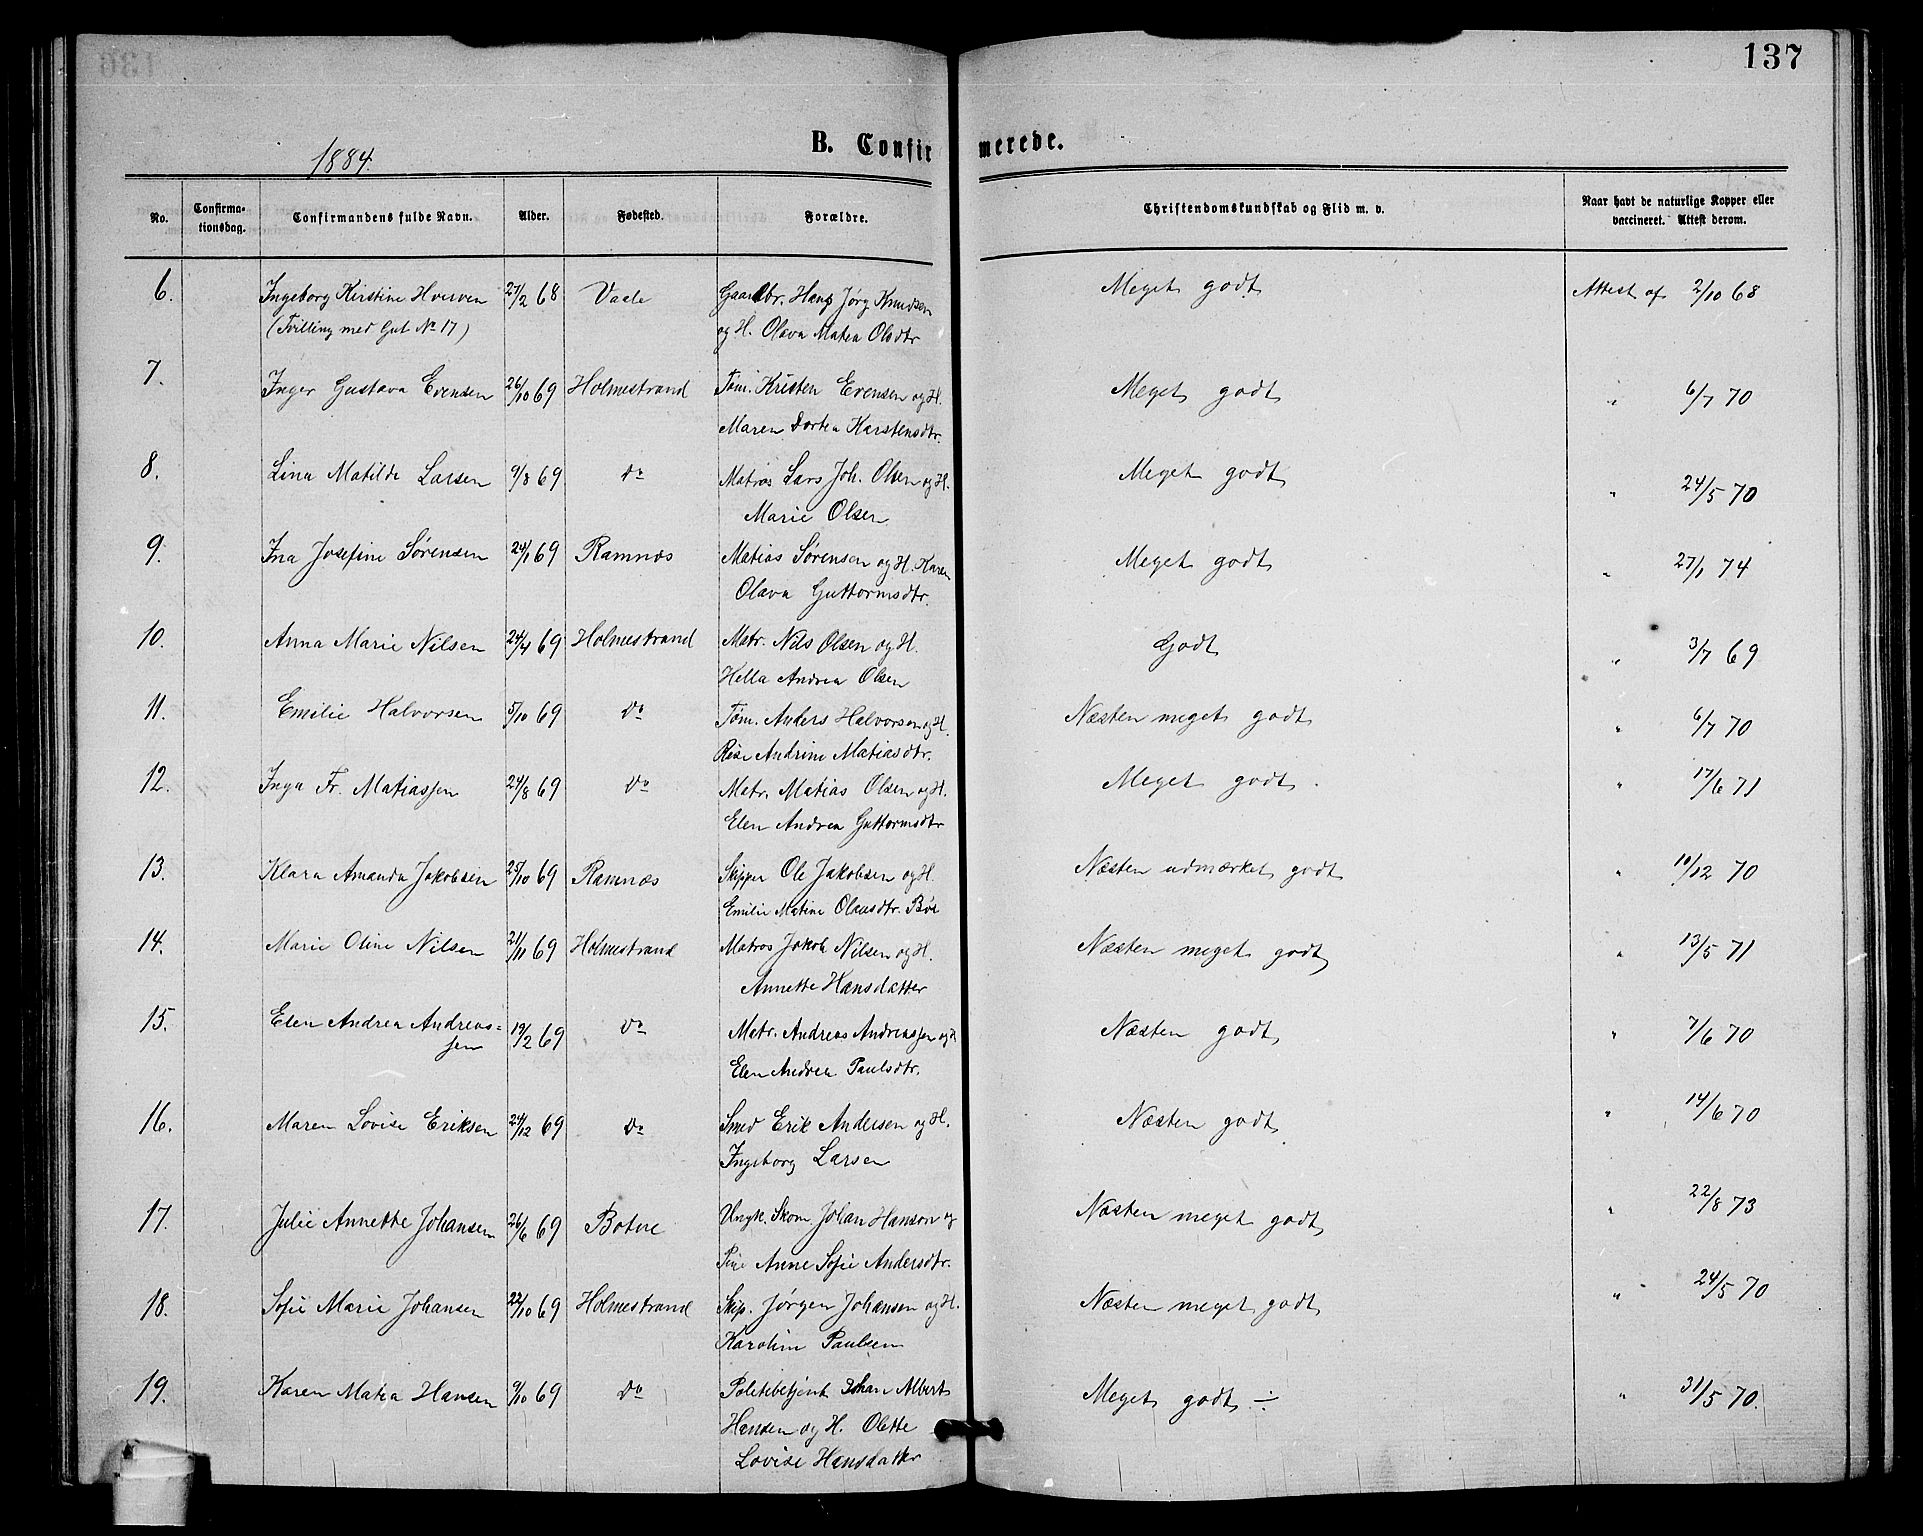 137
B. Confirmerede.
1884.
No. Confirmationsdag. Confirmandens fulde Navn. Alder. Fødested. Forældre. Christendomskundskab og Flid m. v. Naar havt de naturlige Kopper eller vaccineret. Attest derom.
6. Ingeborg Kirstine Hverven 27/2 68 Vaale Gaardbr. Hans Jørg Knudsen Meget godt Attest af 2/10 68
(Tvilling med Gut No 17) og H. Olava Matea Olsdtr
7. Inger Gustava Evensen 26/10 69 Holmestrand Tøm. Kristen Evensen og H. Meget godt " 6/7 70
Maren Dortea Karstensdtr.
8. Lina Matilde Larsen 9/8 69 Do Matros Lars Joh. Olsen og H. Meget godt " 24/5 70
Marie Olsen
9. Ina Josefine Sørensen 24/1 69 Ramnæs Matias Sørensen og H. Karen Meget godt " 27/1 74
Olava Guttormsdtr.
10. Anna Marie Nilsen 24/4 69 Holmestrand Matr. Nils Olsen og H. Godt " 3/7 69
Hella Andrea Olsen
11. Emilie Halvorsen 5/10 69 Do Tøm. Anders Halvorsen og H. Næsten meget godt " 6/7 70
Andrine Matiasdtr.
12. Inga Fr. Matiassen 24/8 69 Do Matr. Matias Olsen og H. Meget godt. " 17/6 71
Elen Andrea Guttormsdtr
13. Klara Amanda Jakobsen 25/10 69 Ramnæs Skipper Ole Jakobsen og H. Næsten udmærket godt " 10/12 70
Emilie Matine Olausdtr. Bøe
14. Marie Oline Nilsen 21/11 69 Holmestrand Matros Jakob Nilsen og H. Næsten meget godt " 13/5 71
Annette Hansdatter
15. Elen Andrea Andreas= 19/2 69 Do Matr. Andreas Andreassen og H Næsten godt " 7/6 70
sen Elen Andrea Paulsdtr.
16. Maren Lovise Eriksen 24/12 69 Do Smed Erik Andersen og H. Næsten godt " 14/6 70
Ingeborg Larsen
17. Julie Annette Johansen 26/6 69 Botne Ungk. Skom. Johan Hanson og Næsten meget godt " 22/8 73
Pine Anne Sofie Andersdtr.
18. Sofie Marie Johansen 22/10 69 Holmestrand Skip. Jørgen Johansen og H. Næsten meget godt " 24/5 70
Karoline Paulsen
19. Karen Matea Hansen 9/10 69 Do Politibetjent Johan Albert Meget godt ÷ " 31/5 70.
Hansen og H. Olette
Lovise Hansdatter